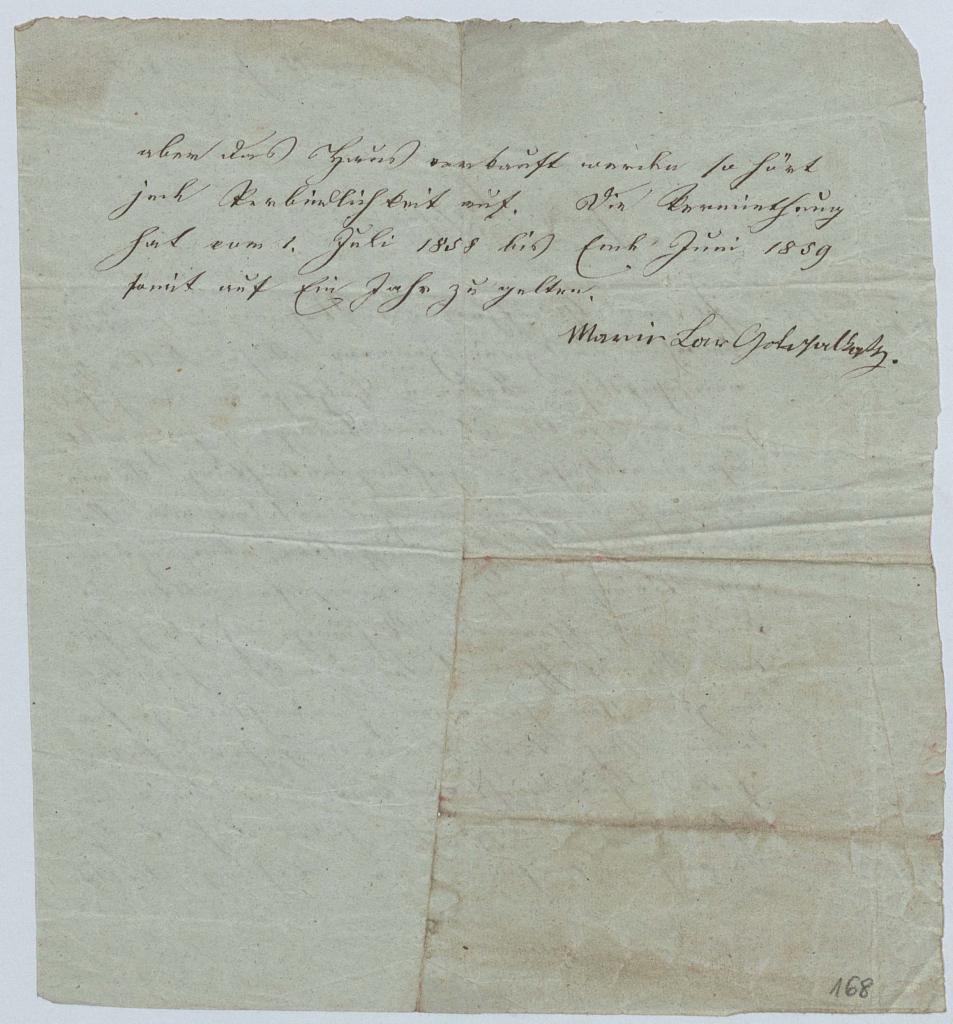 aber das Haus verkauft werden so hört
jede Verbindlichkeit auf. Die Vermiethung
hat vom 1. Juli 1858 bis Ende Juni 1859
somit auf Ein Jahr zu gelten.
Marie
168